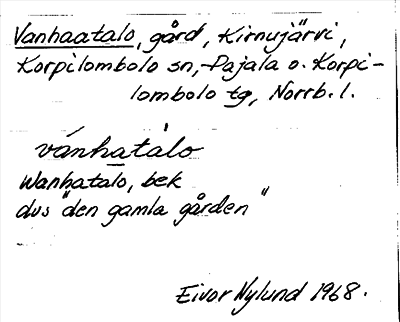 Vanhaatalo, gård, Kirnujärvi,
Korpilombolo sn, Pajala o. Korpi-
lombolo tg, Norrb. l.
vánhatàlo
Wanhatalo, bek
dvs "den gamla gården"
Eivor Nylund 1968.